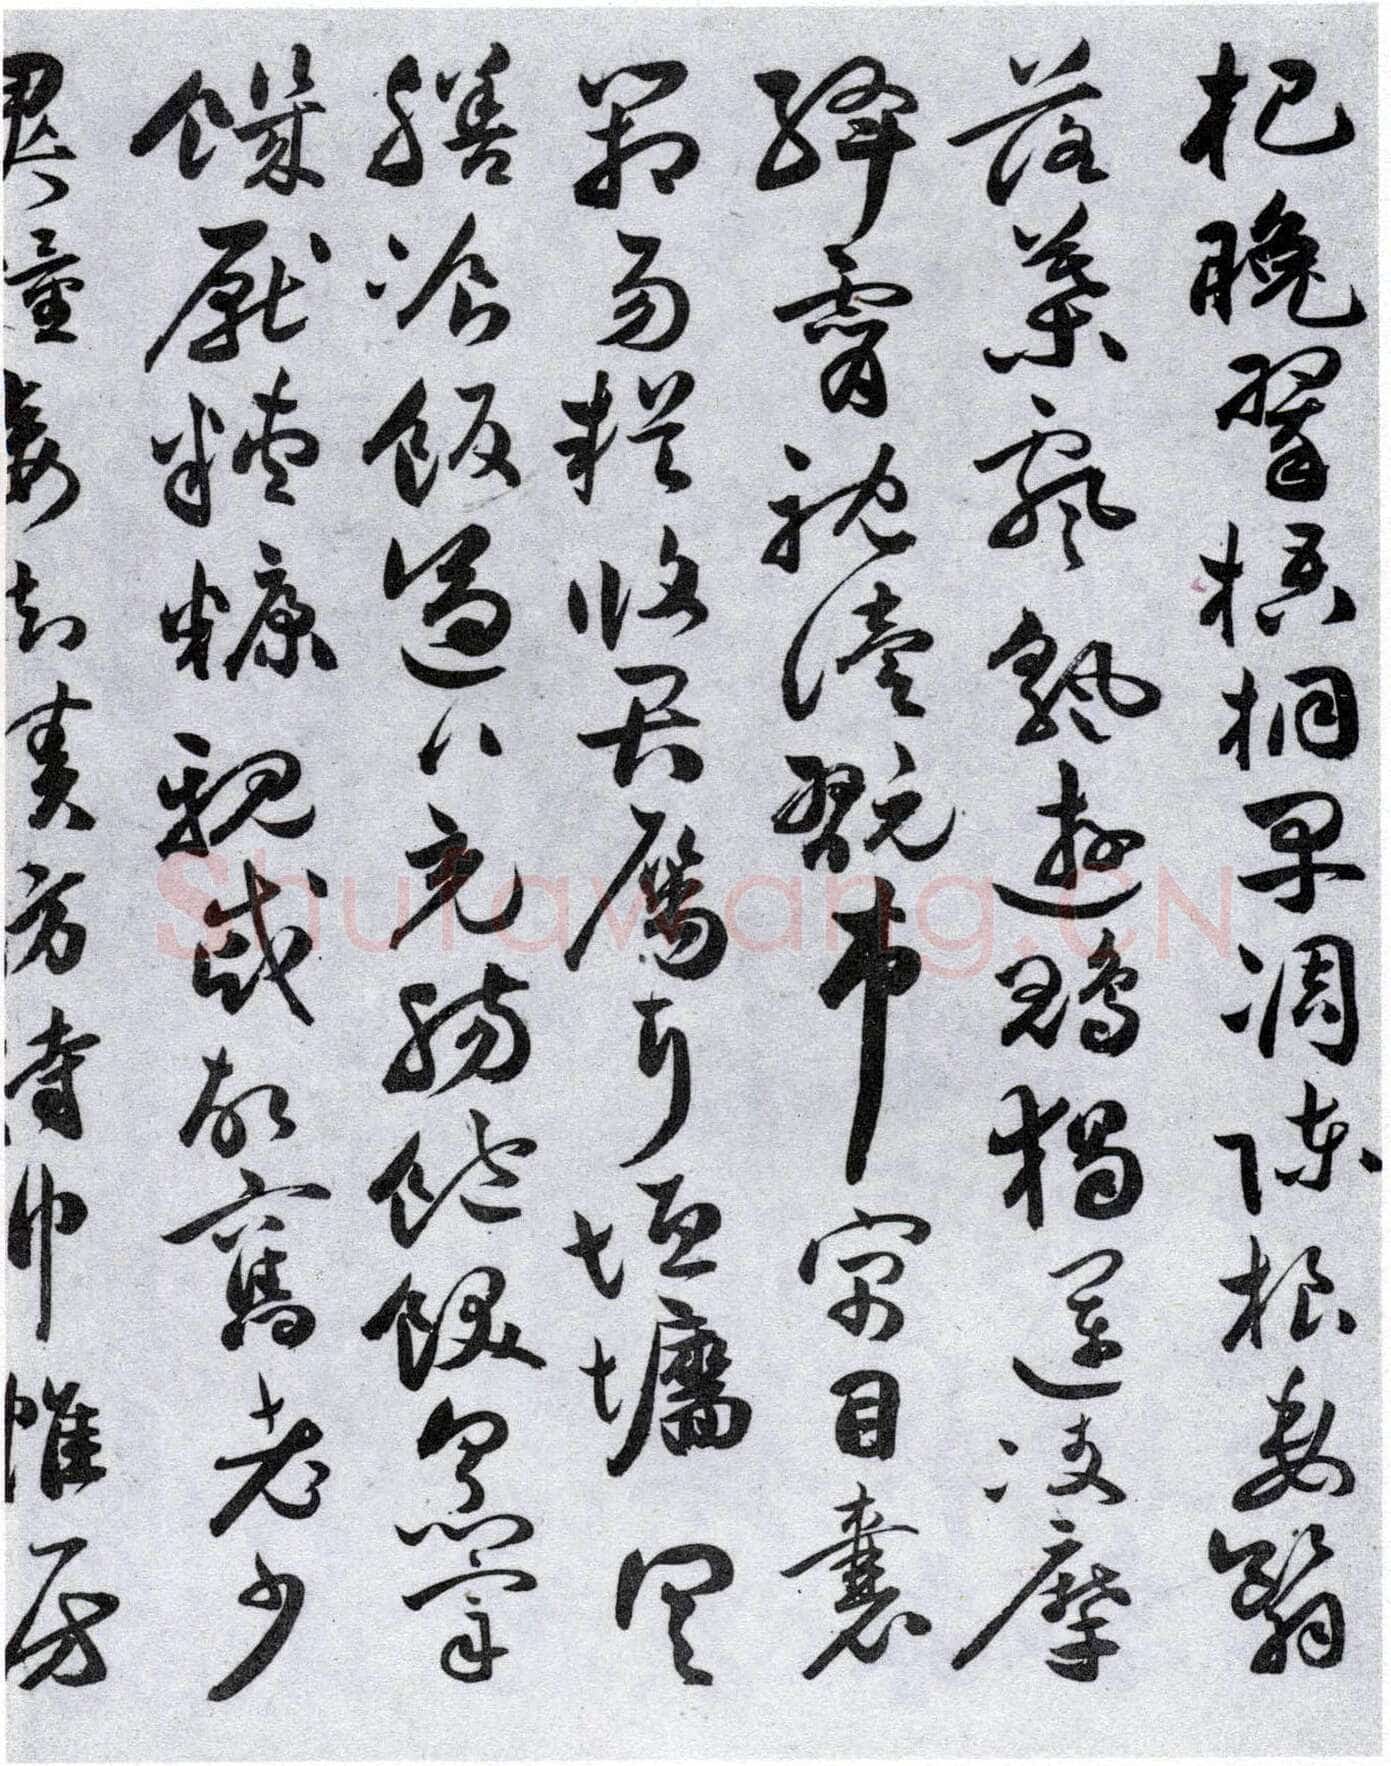 杞晚翠梧桐早凋陈根委翳
落叶飘飖遊鹍独运凌摩
绛霄耽读翫市寓目囊
箱易輶攸畏属耳垣墙具
膳飡飯适口充肠饱饫烹宰
饥厌糟糠亲戚故旧老少
異粮妾御绩纺侍巾帷房
Shufawang.CN